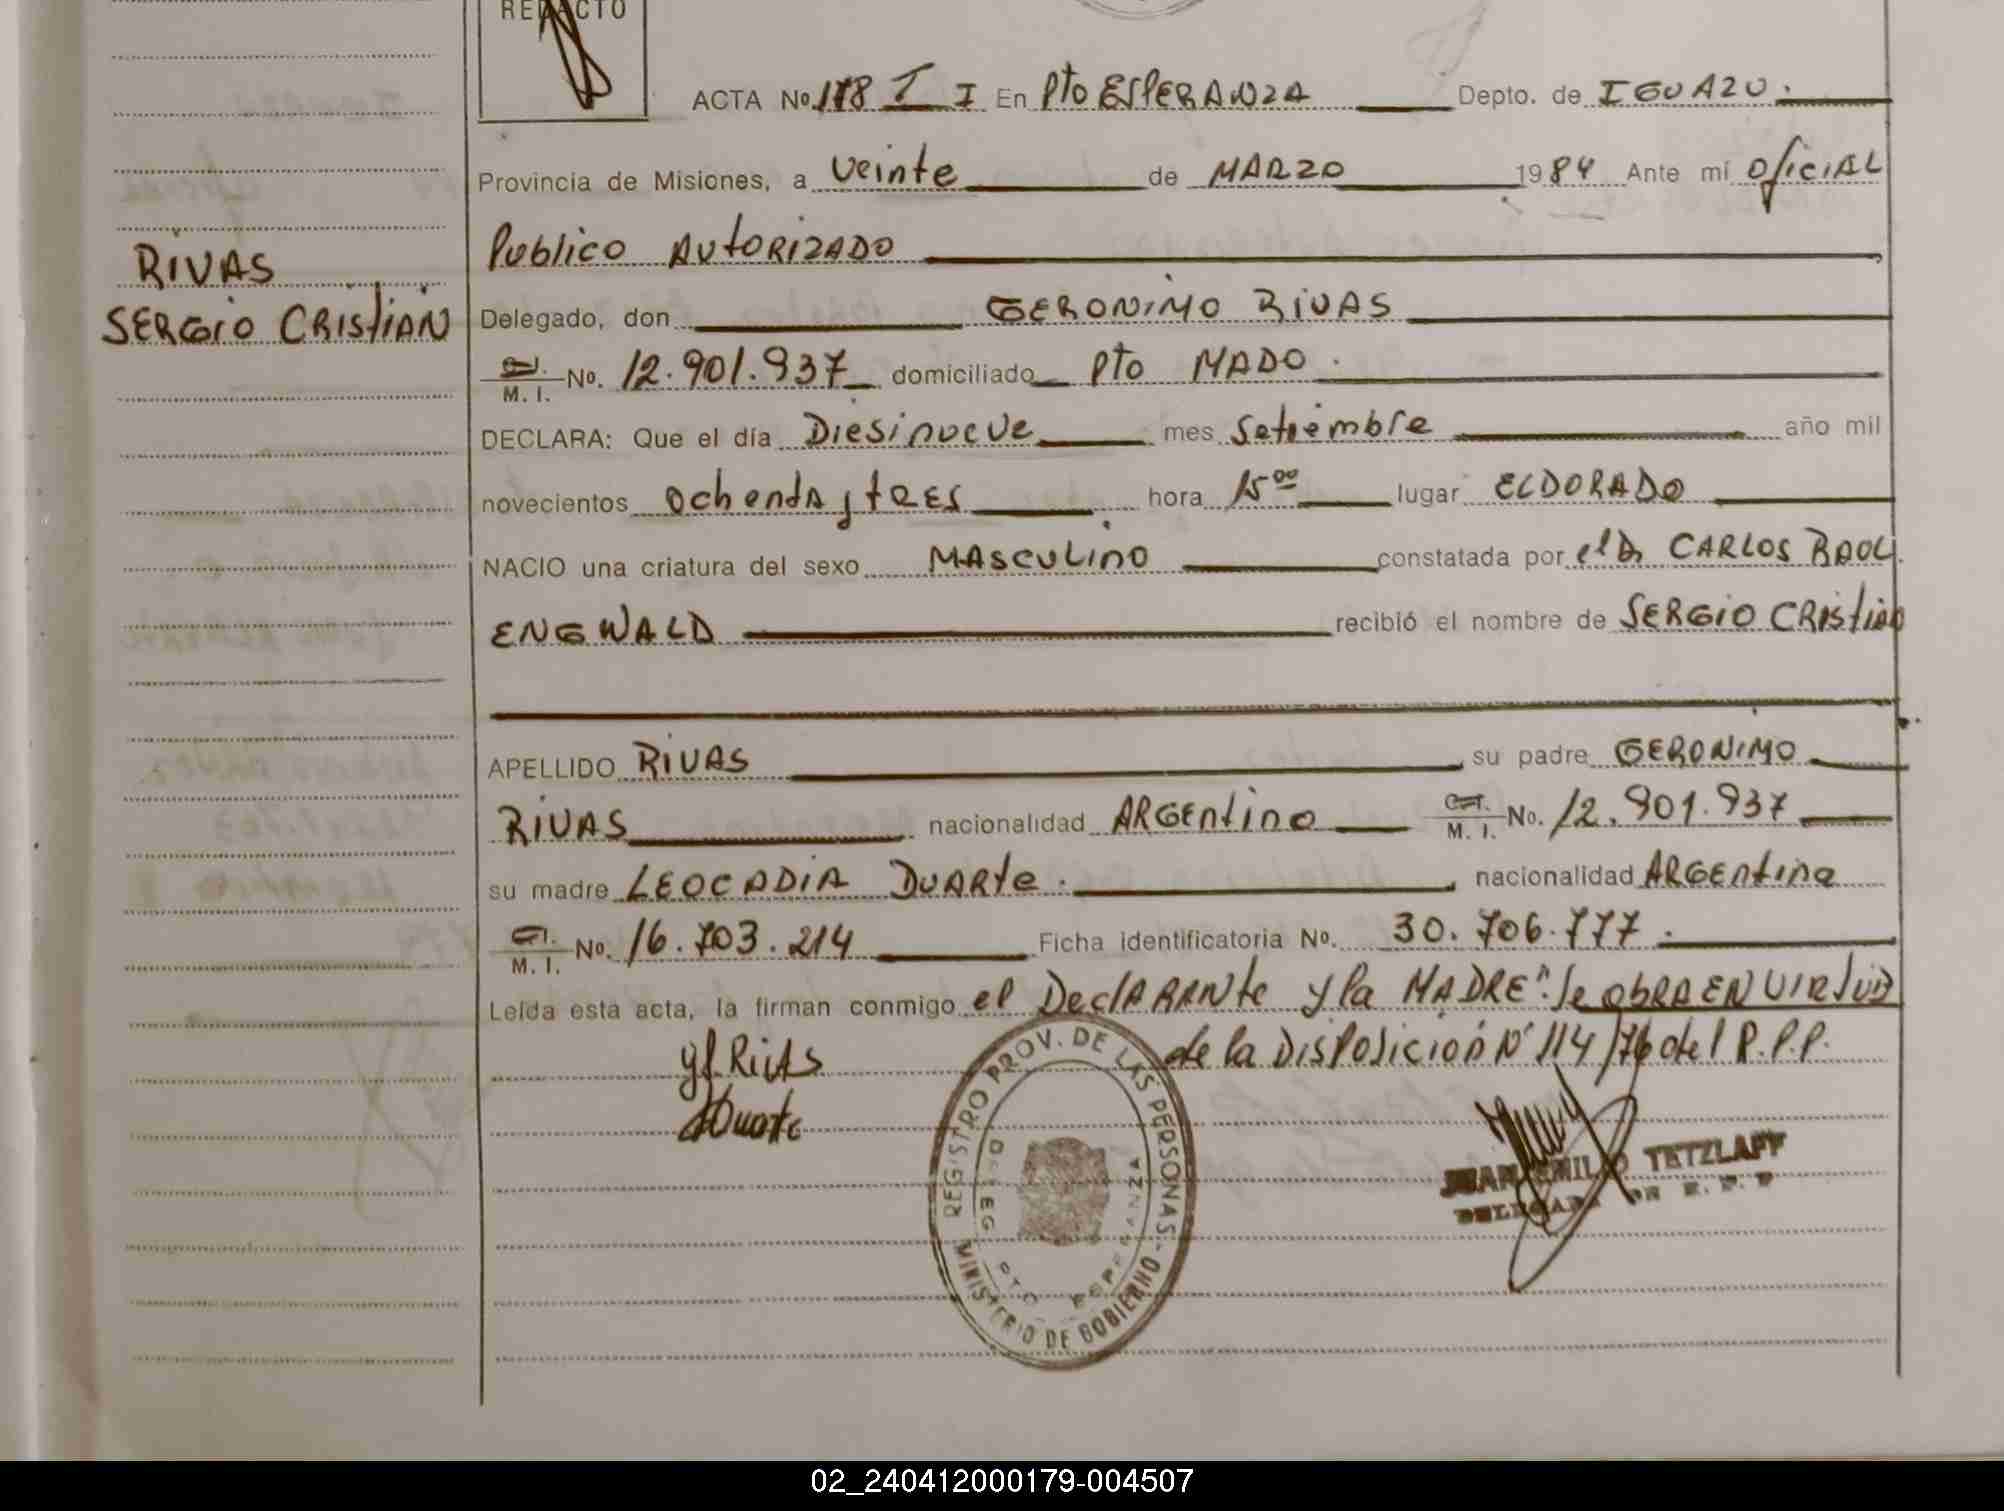 REDACTO
ACTA No. 178 T I En Pto ESPERANZA Depto. de IGUAZU.
Provincia de Misiones, a veinte de MARZO 1984 Ante mí OficiAL
Publico AUtoRizADO
RIVAS
SERGiO CRistiAN
Delegado, don GERONiMO RIVAS
C.I. M. I. No. 12.901.937 domiciliado Pto MADO.
DECLARA: Que el día Diesinueve mes Setiembre año mil
novecientos OchentA y tRES hora 15ºº lugar ELDORADO
NACIO una criatura del sexo MASCULiNO constatada por el Dr CARLOS RAUL
ENGWALD recibió el nombre de SERGiO CRistiAN
APELLIDO RiVAS su padre GERONIMO
RIVAS nacionalidad ARGEntino C.I. M. I. No. 12.901.937
su madre LEOCADIA DUARte. nacionalidad ARGEntina
C.I. M. I. No. 16.703.214 Ficha identificatoria No. 30.706.777.
Leída esta acta, la firman conmigo el DeclARANte y la MADRE". Se obRA EN VIRtUD
de la DisPosicion Nº 114/76 del R.P.P.
RiVAS
Duarte
REGISTRO PROV. DE LAS PERSONAS - MINISTERIO DE GOBIERNO
DELEG. PTO ESPERANZA
JUAN EMILIO TETZLAFF
DELEGADO DE R. P. P
02_240412000179-004507